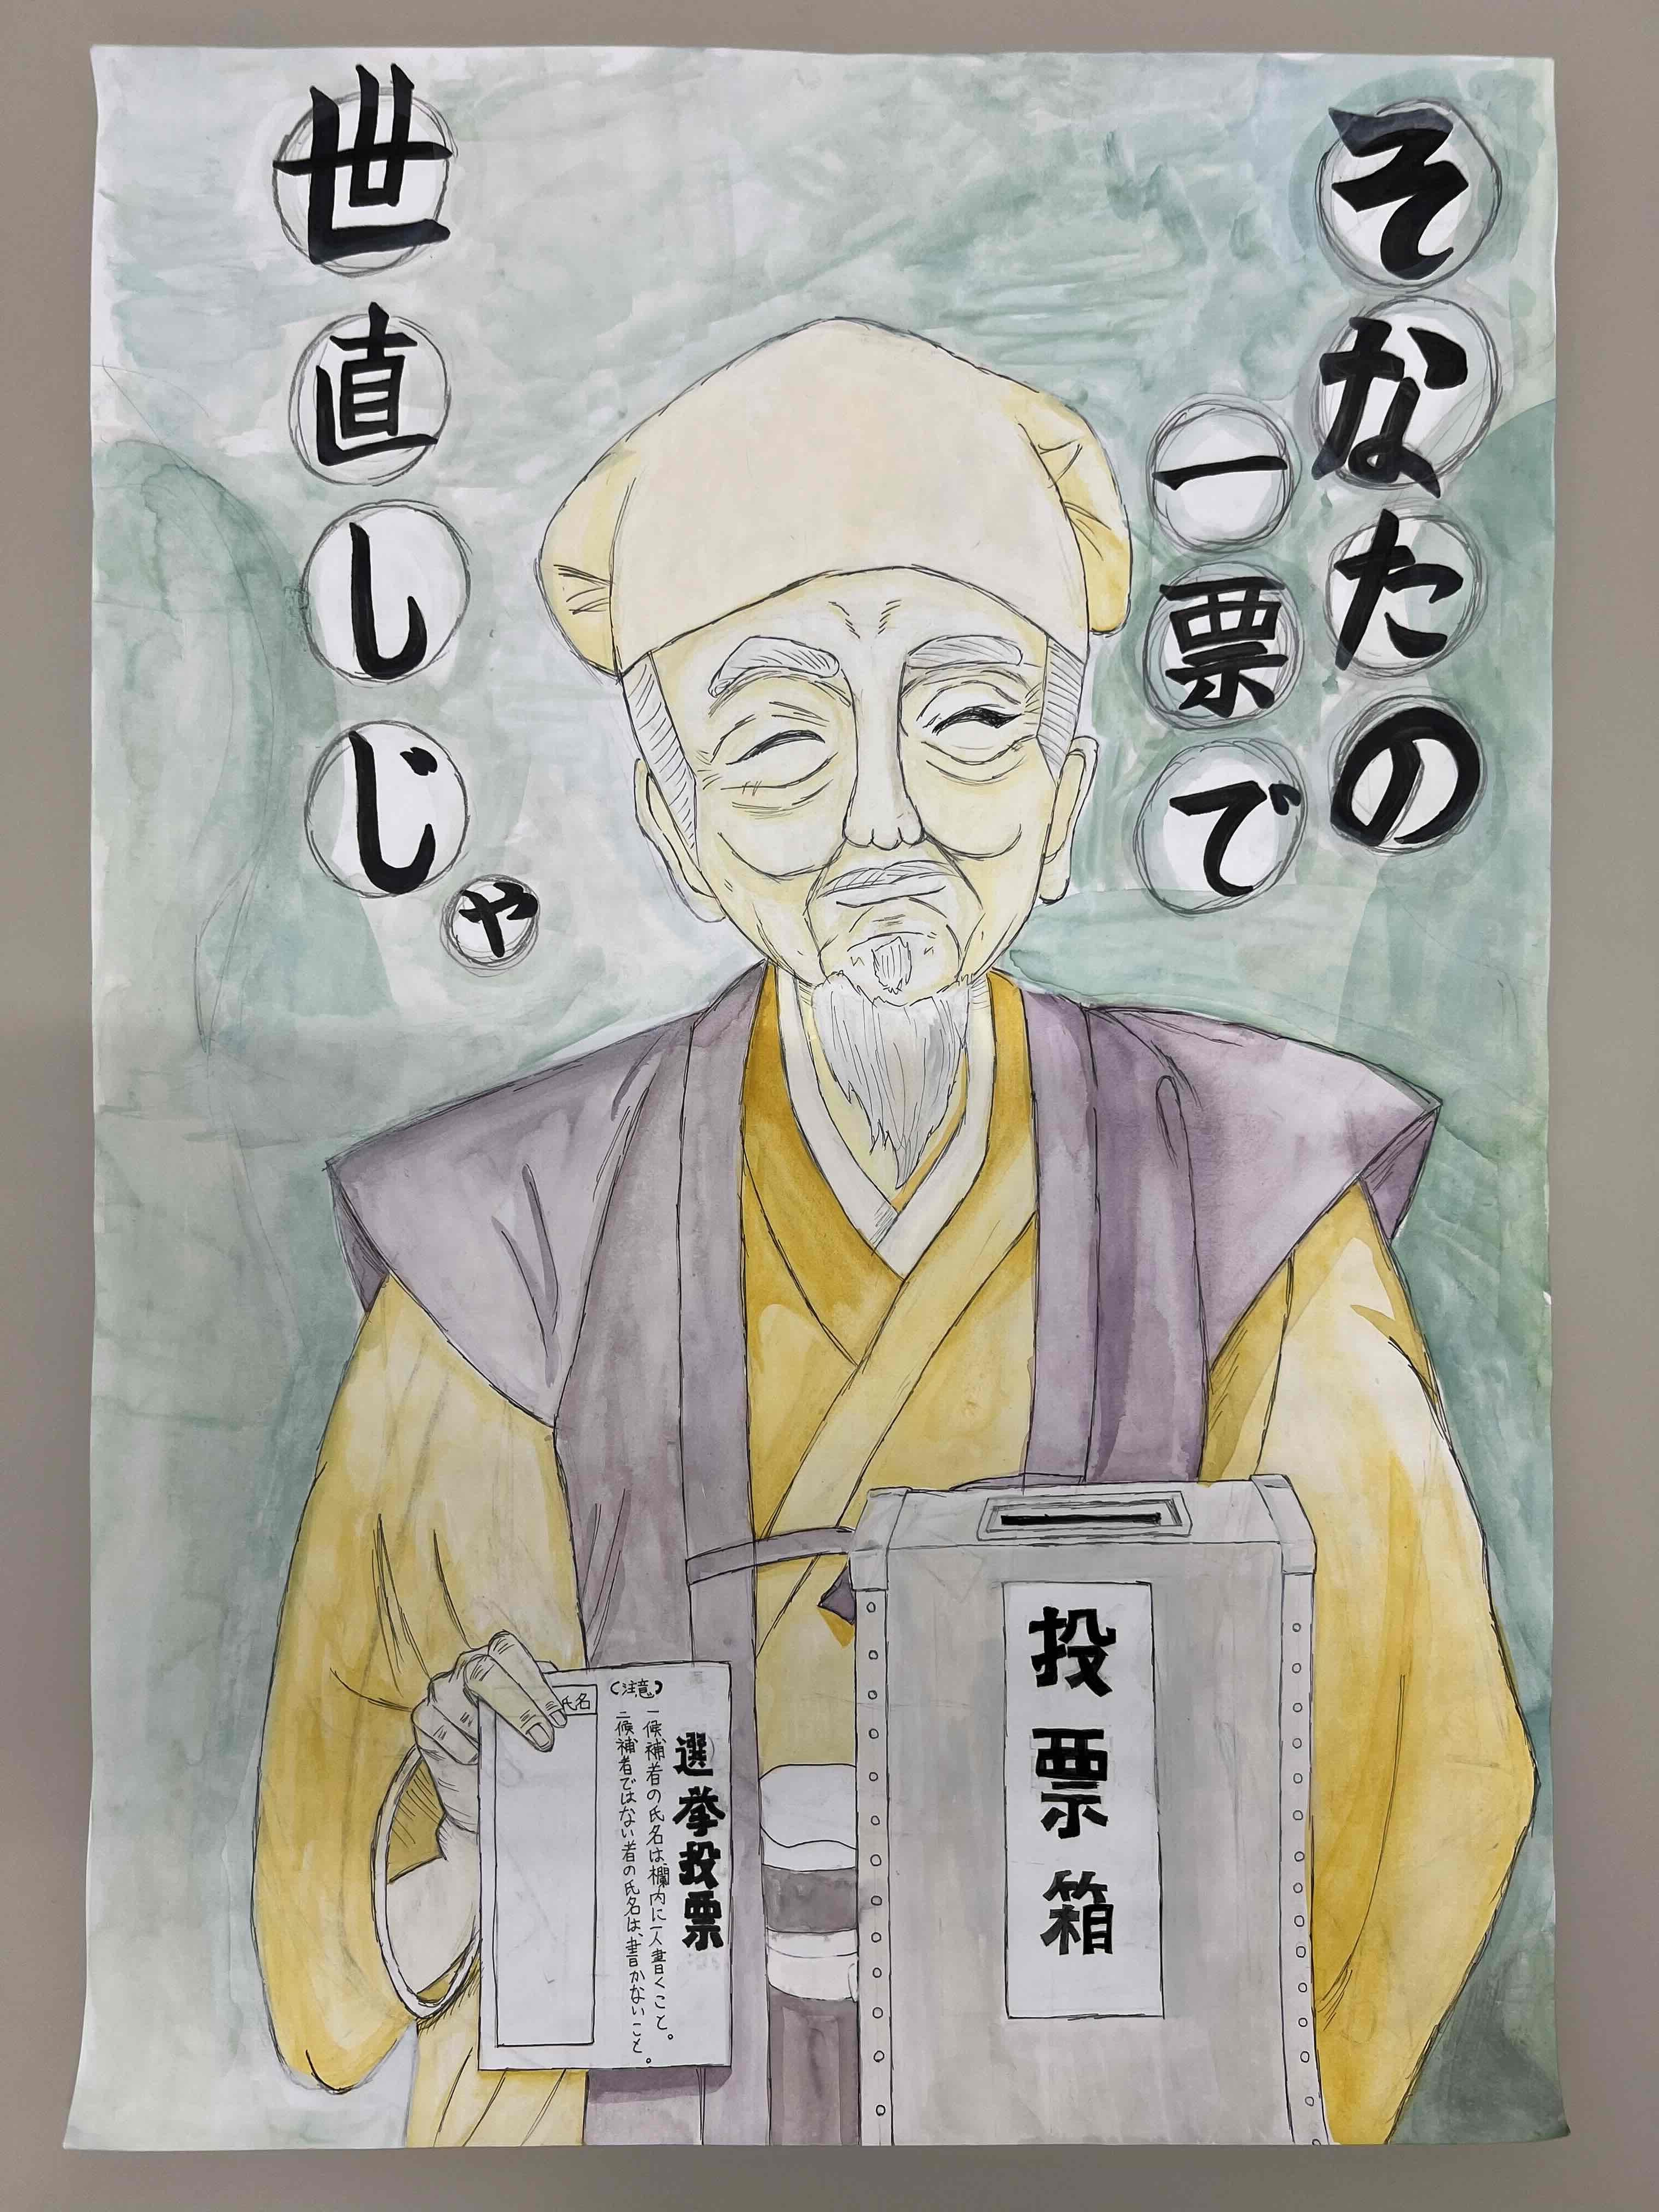 そなたの
一票で
世直しじゃ
投票箱
選挙投票
(注意)
一候補者の氏名は欄内に一人書くこと。
二候補者ではない者の氏名は、書かないこと。
氏名